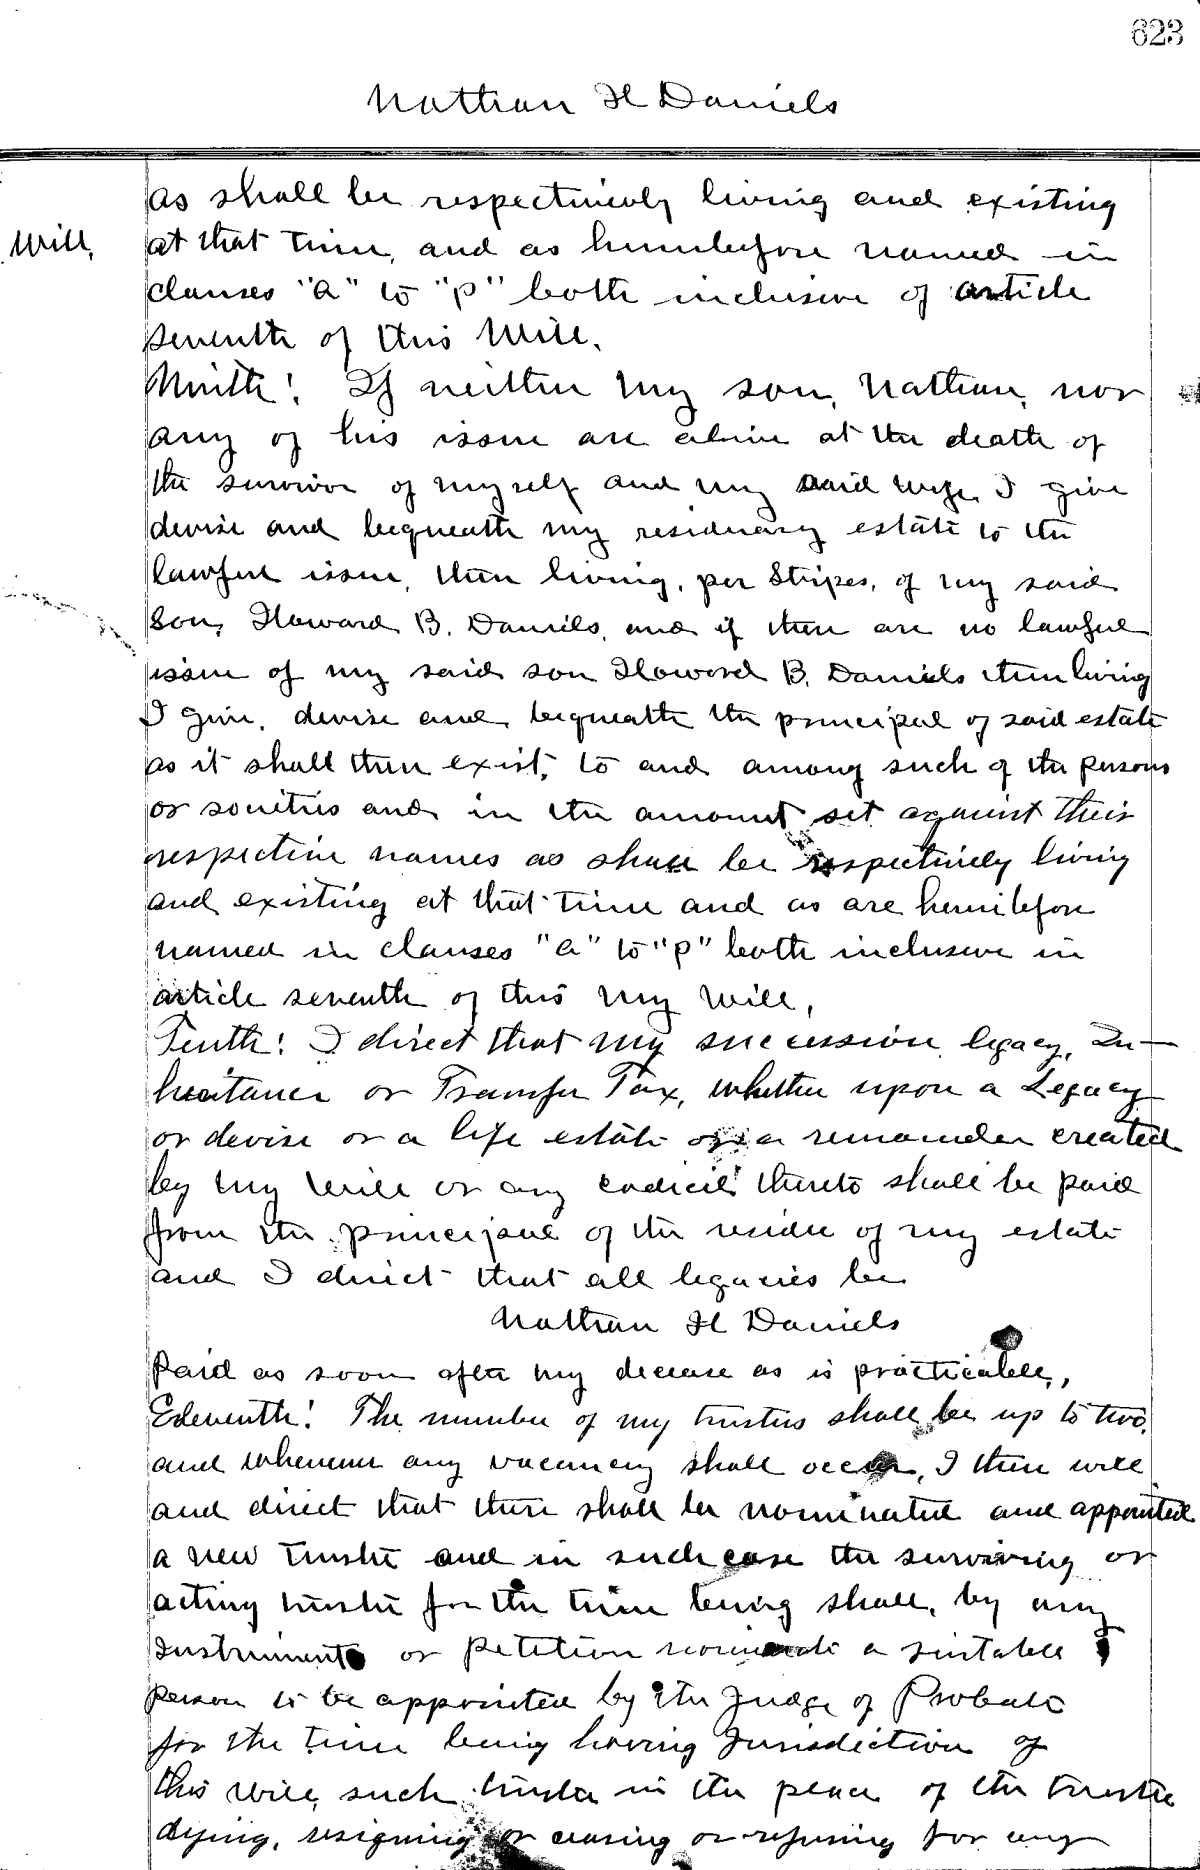 623
Nathan H Daniels
as shall be respectively living and existing
Will,
at that time, and as hereinbefore named in
clauses "a" to "p" both inclusive of article
seventh of this Will.
Ninth! If neither my son, Nathan, nor
any of his issue are alive at the death of
the survivor of myself and my said wife, I give
devise and bequeath my residuary estate to the
lawful issue, then living, per Stripes, of my said
Son, Howard B. Daniels, and if there are no lawful
issue of my said son Howard B. Daniels then living
I give, devise and bequeath the principal of said estate
as it shall then exist, to and among such of the persons
or societies and in the amount set against their
respective names as shall be respectively living
and existing at that time and as are hereinbefore
named in clauses "a" to "p" both inclusive in
article seventh of this my Will,
Tenth! I direct that my succession, legacy, In-
heritance or Transfer Tax, whether upon a Legacy
or devise or a life estate or a remainder created
by my Will or any codicil thereto shall be paid
from the principal of the residue of my estate
and I direct that all legacies be
Nathan H Daniels
Paid as soon after my decease as is practicable,
Eleventh! The number of my trustees shall be up to two,
and whenever any vacancy shall occur, I then will
and direct that there shall be nominated and appointed
a new trustee and in such case the surviving or
acting trustee for the time being shall, by any
Instrument or petition nominate a suitable
person to be appointed by the Judge of Probate
for the time being having Jurisdiction of
this Will, such trustee in the place of the trustee
dying, resigning or ceasing or refusing for any